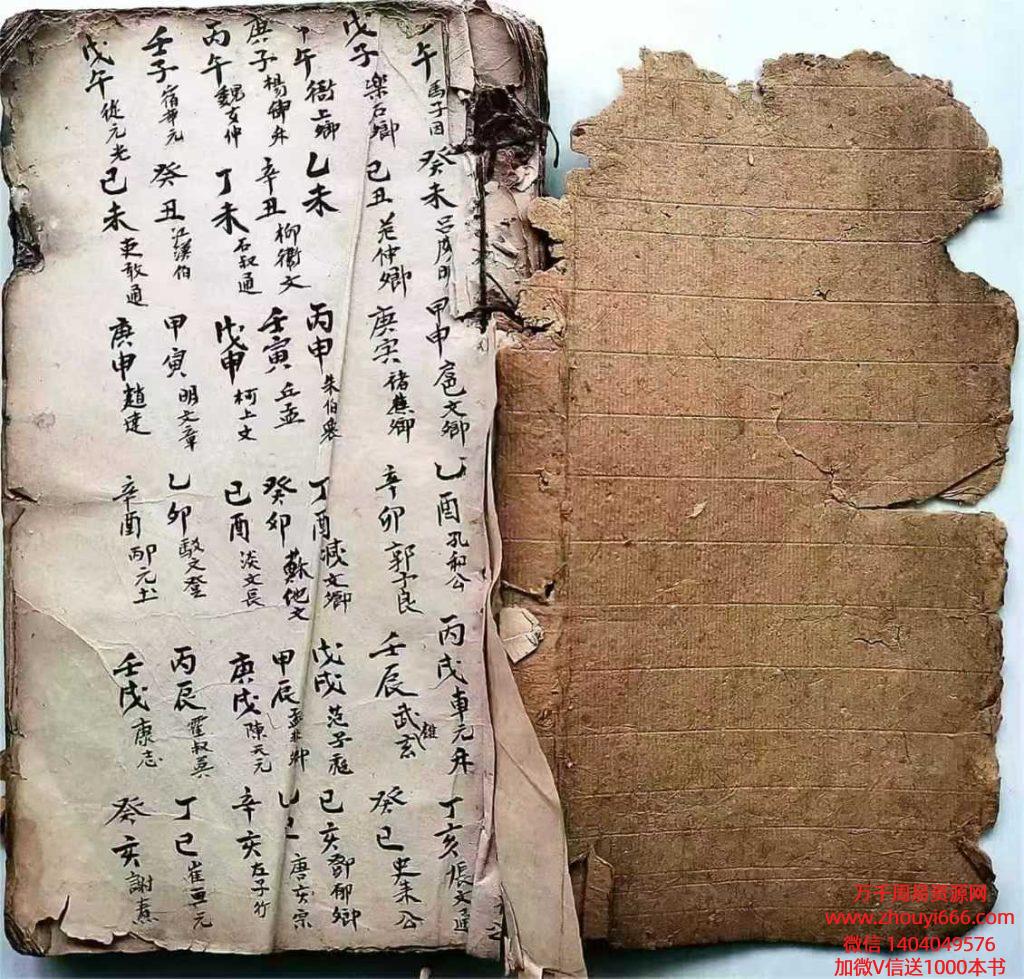 午 馬子因 癸未 呂彥明 甲申 扈文卿 乙酉 孔和公 丙戌 車元升 丁亥 張文通
戊子 樂石卿 己丑 范仲卿 庚寅 褚蕉卿 辛卯 郭子良 壬辰 武 癸巳 史朱公
午 衛上卿 乙未 丙申 朱伯衆 丁酉 臧文卿 戊戌 范子 己亥 鄧都卿
庚子 楊 辛丑 柳衛文 壬寅 丘孟 癸卯 蘇他文 甲辰 孟非卿 乙巳 唐亥宗
丙午 魏文仲 丁未 石叔通 戊申 柯上文 己酉 淡文長 庚戌 陳元元 辛亥 左子竹
壬子 宿都元 癸丑 江漢伯 甲寅 明文章 乙卯 文登 丙辰 霍叔英 丁巳 崔亜元
戊午 從元光 己未 敢通 庚申 趙達 辛酉 邴元 壬戌 康志 癸亥 謝熹
万千周易资源网
www.zhouyi666.com
微信 1404049576
加微V信送1000本书